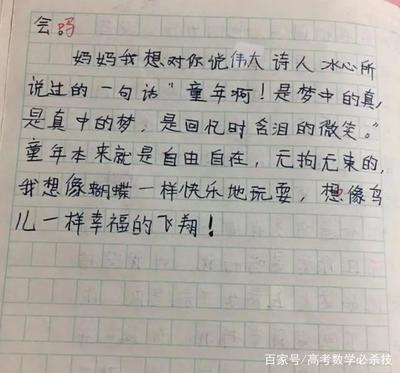 会吗
妈妈我想对你说伟大诗人冰心所
说过的一句话"童年啊！是梦中的真,
是真中的梦，是回忆时含泪的微笑。"
童年本来就是自由自在，无拘无束的,
我想像蝴蝶一样快乐地玩耍，想像鸟
儿一样幸福的飞翔！
百家号/高考数学必杀技